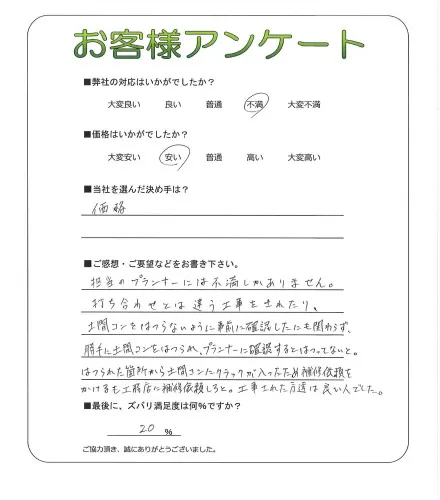 お客様アンケート
■弊社の対応はいかがでしたか？
大変良い 良い 普通 不満 大変不満
■価格はいかがでしたか？
大変安い 安い 普通 高い 大変高い
■当社を選んだ決め手は？
価格
■ご感想・ご要望などをお書き下さい。
担当のプランナーには不満しかありません。
打ち合わせとは違う工事をされたり、
土間コンをはつらないように事前に確認したにも関わらず、
勝手に土間コンをはつられ、プランナーに確認するとはつってないと。
はつられた箇所から土間コンにクラックが入ったため補修依頼を
かけるも工務店に補修依頼しろと。工事された方達は良い人でした。
■最後に、ズバリ満足度は何％ですか？
20 ％
ご協力頂き、誠にありがとうございました。